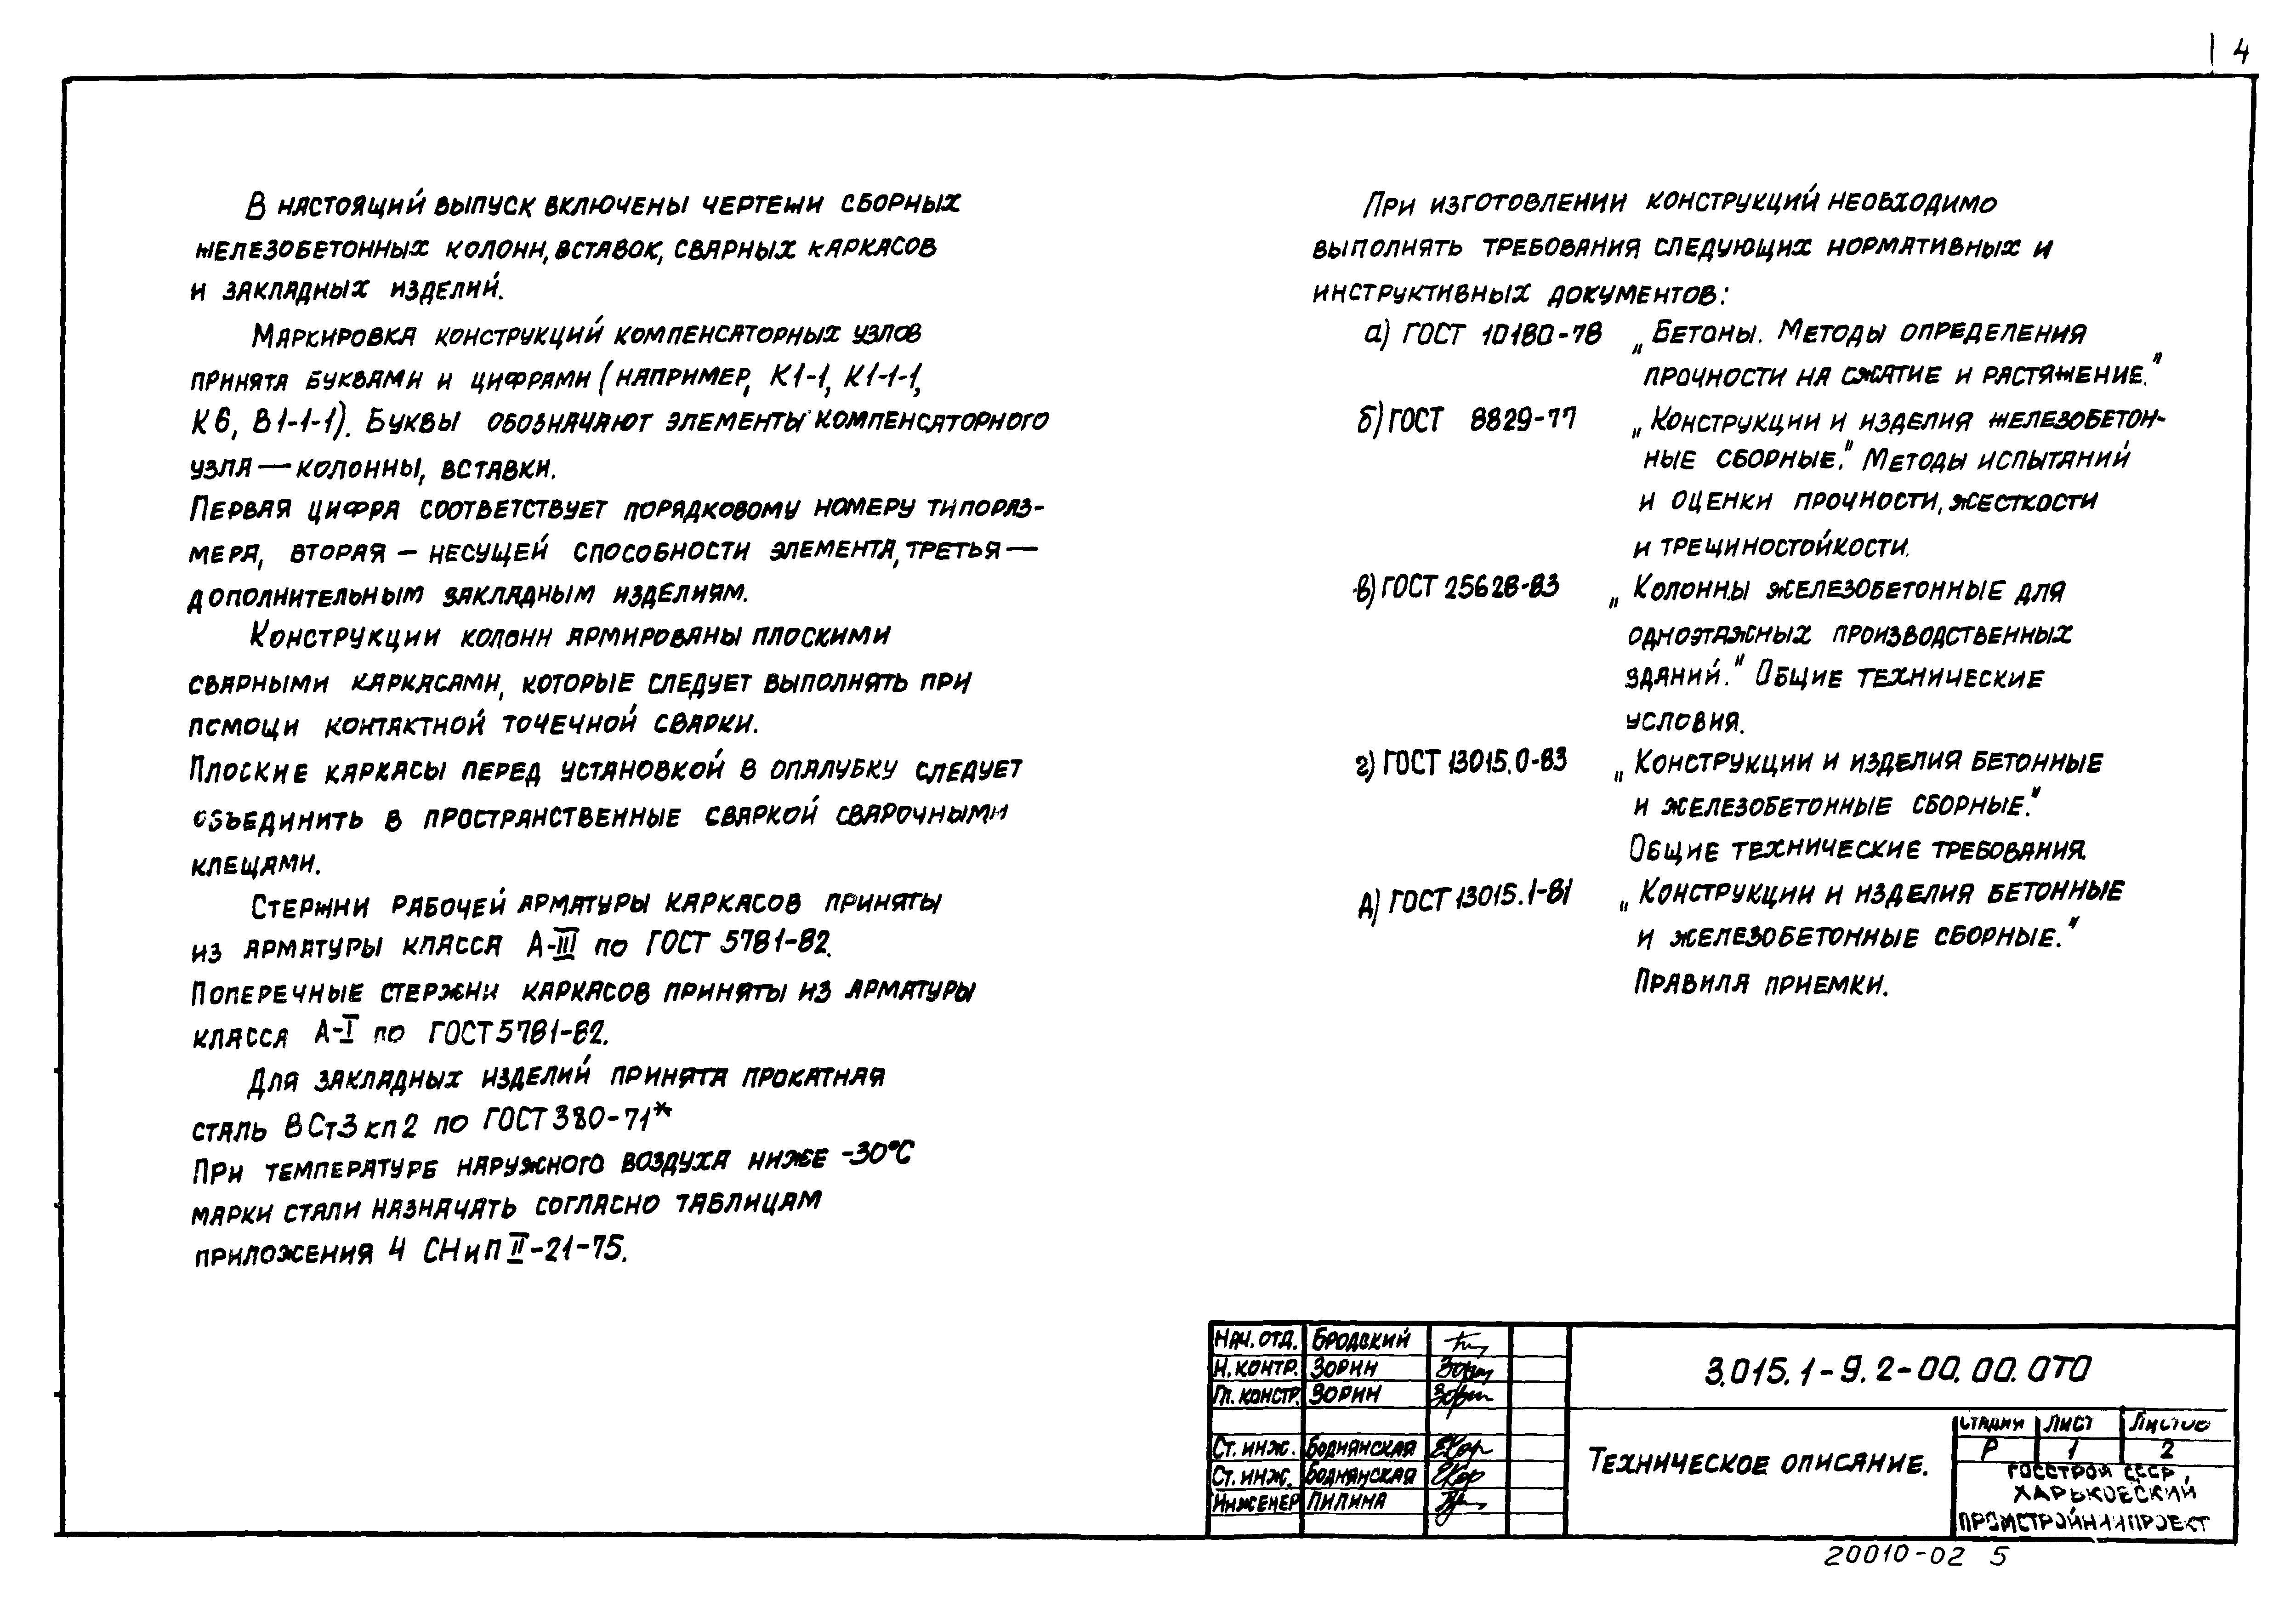 4
В настоящий выпуск включены чертежи сборных
железобетонных колонн, вставок, сварных каркасов
и закладных изделий.
Маркировка конструкций компенсаторных узлов
принята буквами и цифрами (например, К1-1, К1-1-1,
К6, В1-1-1). Буквы обозначают элементы компенсаторного
узла — колонны, вставки.
Первая цифра соответствует порядковому номеру типораз-
мера, вторая — несущей способности элемента, третья —
дополнительным закладным изделиям.
Конструкции колонн армированы плоскими
сварными каркасами, которые следует выполнять при
помощи контактной точечной сварки.
Плоские каркасы перед установкой в опалубку следует
объединить в пространственные сваркой сварочными
клещами.
Стержни рабочей арматуры каркасов приняты
из арматуры класса А-III по ГОСТ 5781-82.
Поперечные стержни каркасов приняты из арматуры
класса А-I по ГОСТ 5781-82.
Для закладных изделий принята прокатная
сталь ВСт3кп2 по ГОСТ 380-71*
При температуре наружного воздуха ниже -30°С
марки стали назначать согласно таблицам
приложения 4 СНиП II-21-75.
При изготовлении конструкций необходимо
выполнять требования следующих нормативных и
инструктивных документов:
а) ГОСТ 10180-78 „Бетоны. Методы определения
прочности на сжатие и растяжение."
б) ГОСТ 8829-77 „Конструкции и изделия железобетон-
ные сборные." Методы испытаний
и оценки прочности, жесткости
и трещиностойкости.
в) ГОСТ 25628-83 „Колонны железобетонные для
одноэтажных производственных
зданий." Общие технические
условия.
г) ГОСТ 13015.0-83 „Конструкции и изделия бетонные
и железобетонные сборные."
Общие технические требования.
д) ГОСТ 13015.1-81 „Конструкции и изделия бетонные
и железобетонные сборные."
Правила приемки.
Нач. отд. Бродский
Н. контр. Зорин
Гл. констр. Зорин
Ст. инж. Боднянская
Ст. инж. Боднянская
Инженер Пилина
3.015.1-9.2-00.00.0ТО
Техническое описание.
Стадия Лист Листов
Р 1 2
Госстрой СССР,
Харьковский
Промстройниипроект
20010-02 5